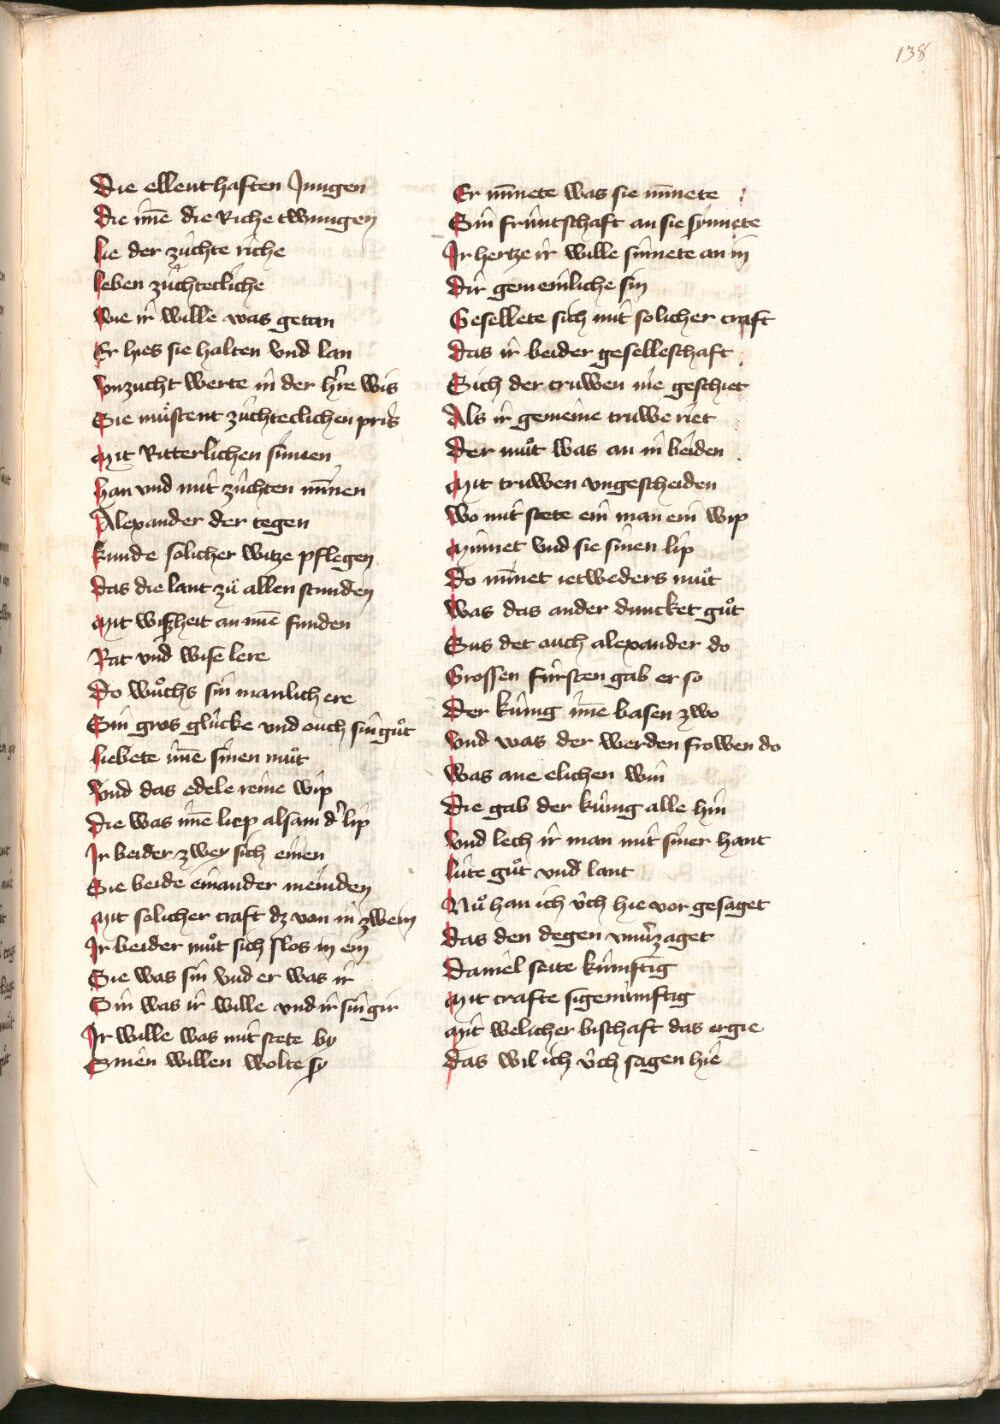 138
Die ellenthaften Jungen
Die im̄e die Riche twungen
lie der zúchte riche
leben zúchtecliche
Wie ir wille was getan
Er hies sie halten vnd lan
Vnzucht werte in der h're wis
Sie muͦstent zúchteclichen pris
Mit Ritterlichen sinnen
han vnd mit zúchten mīnen
Alexander der tegen
kunde solicher witze pflegen
das die lant zuͦ allen stunden
Mit wiszheit an im̄e funden
Rat vnd wise lere
Do wuͦchs sin manlich ere
Sin gros glúcke vnd ouch sin guͦt
liebete im̄e sinen muͦt
Vnd das edele reine wip
Die was im̄e liep alsam d' lip
Ir beider zwey sich einen
Sie beide einander meinden
Mit solicher craft dz von in zwein
Ir beider muͦt sich slos in ein
Sie was sin vnd er was ir
Sin was ir wille vnd ir sin gir
Ir wille was mit stete by
Sinen willen wolte sy
Er mīnete was sie mīnete
Sin frúntschaft an sie sýnnete
Ir hertze ir wille sinnete an in
Dir gemeinliche sin
Gesellete sich mit solicher craft
Das ir beider geselleschaft
Sich der truwen nie geschiet
Als ir gemeine truwe riet
Der muͦt was an in beiden
Mit truwen vngescheiden
Wo mit stete ein man ein wip
Minnet vnd sie sinen lip
Do mīnet ietweders muͦt
Was das ander duncket guͦt
Sus det auch alexander do
Grossen fúrsten gab er so
Der kúnig im̄e basen zwo
Vnd was der werden frowen do
Was ane elichen win
Die gab der kúnig alle hin
Vnd lech ir man mit siner hant
lúte guͦt vnd lant
Nuͦ han ich úch hie vor gesaget
Das den degen vnu'zaget
Daniel seite kúnftig
Mit crafte sigenúnftig
Mit welicher bischaft das ergie
Das wil ich úch sagen hie